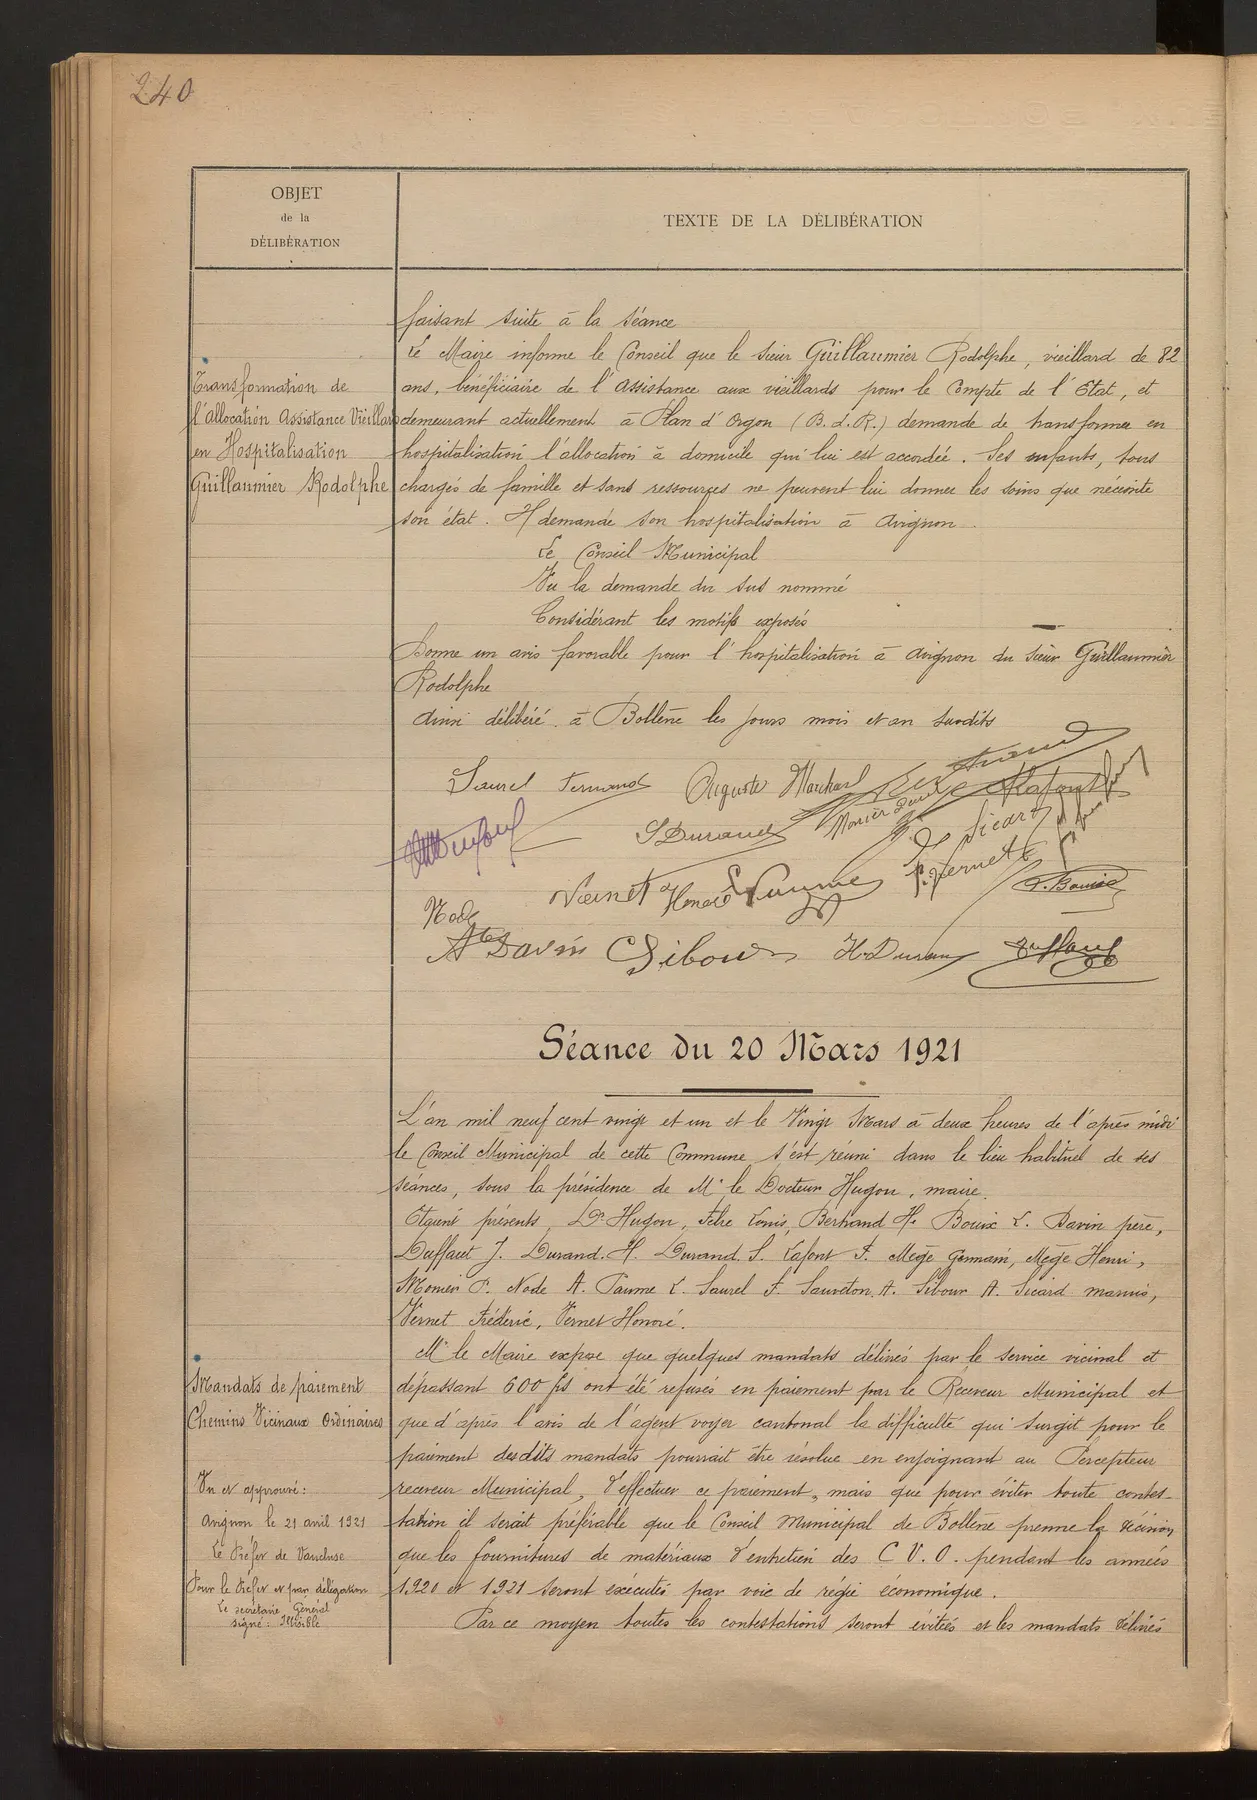 240
OBJET
de la
DÉLIBÉRATION
TEXTE DE LA DÉLIBÉRATION
faisant suite à la séance
Transformation de
l'Allocation Assistance Vieillard
en Hospitalisation
Guillaumier Rodolphe
Le Maire informe le Conseil que le sieur Guillaumier Rodolphe, vieillard de 82
ans, bénéficiaire de l'Assistance aux vieillards pour le Compte de l'Etat, et
demeurant actuellement à Plan d'Orgon (B.d.R.) demande de transformer en
hospitalisation l'allocation à domicile qui lui est accordée. Ses enfants, tous
chargés de famille et sans ressources ne peuvent lui donner les soins que nécessite
son état. Il demande son hospitalisation à Avignon.
Le Conseil Municipal
Vu la demande du sus nommé
Considérant les motifs exposés
Donne un avis favorable pour l'hospitalisation à Avignon du sieur Guillaumier
Rodolphe
Ainsi délibéré à Bollène les jours mois et an susdits
Saurel Fernand Auguste Bertrand Lafont
S Durand Monier Sicard
Vernet Honoré Paume F. Vernet L. Bouix
Node
A Davin Sibour H. Durand Duffaut
Séance du 20 Mars 1921
L'an mil neuf cent vingt et un et le Vingt Mars à deux heures de l'après midi
le Conseil Municipal de cette Commune s'est réuni dans le lieu habituel de ses
séances, sous la présidence de Mr le Docteur Hugon, maire.
Etaient présents, Dr Hugon, Febre Louis, Bertrand H. Bouix L. Davin père,
Duffaut J. Durand. H. Durand S. Lafont F. Mège Germain, Mège Henri,
Monier P. Node A. Paume L. Saurel F. Sauveton. A. Sibour A. Sicard marius,
Vernet Frédéric, Vernet Honoré.
Mandats de paiement
Chemins Vicinaux Ordinaires
Mr le Maire expose que quelques mandats délivrés par le service vicinal et
dépassant 600 frs ont été refusés en paiement par le Receveur Municipal et
que d'après l'avis de l'agent voyer cantonal la difficulté qui surgit pour le
paiement desdits mandats pourrait être résolue en enjoignant au Percepteur
receveur Municipal, d'effectuer ce paiement, mais que pour éviter toute contes-
tation il serait préférable que le Conseil Municipal de Bollène prenne la décision
que les fournitures de matériaux d'entretien des C.V.O. pendant les années
1920 et 1921 seront exécutés par voie de régie économique.
Par ce moyen toutes les contestations seront évitées et les mandats délivrés
Vu et approuvé:
Avignon le 21 avril 1921
Le Préfet de Vaucluse
Pour le Préfet et par délégation
Le secrétaire Général
signé: Illisible